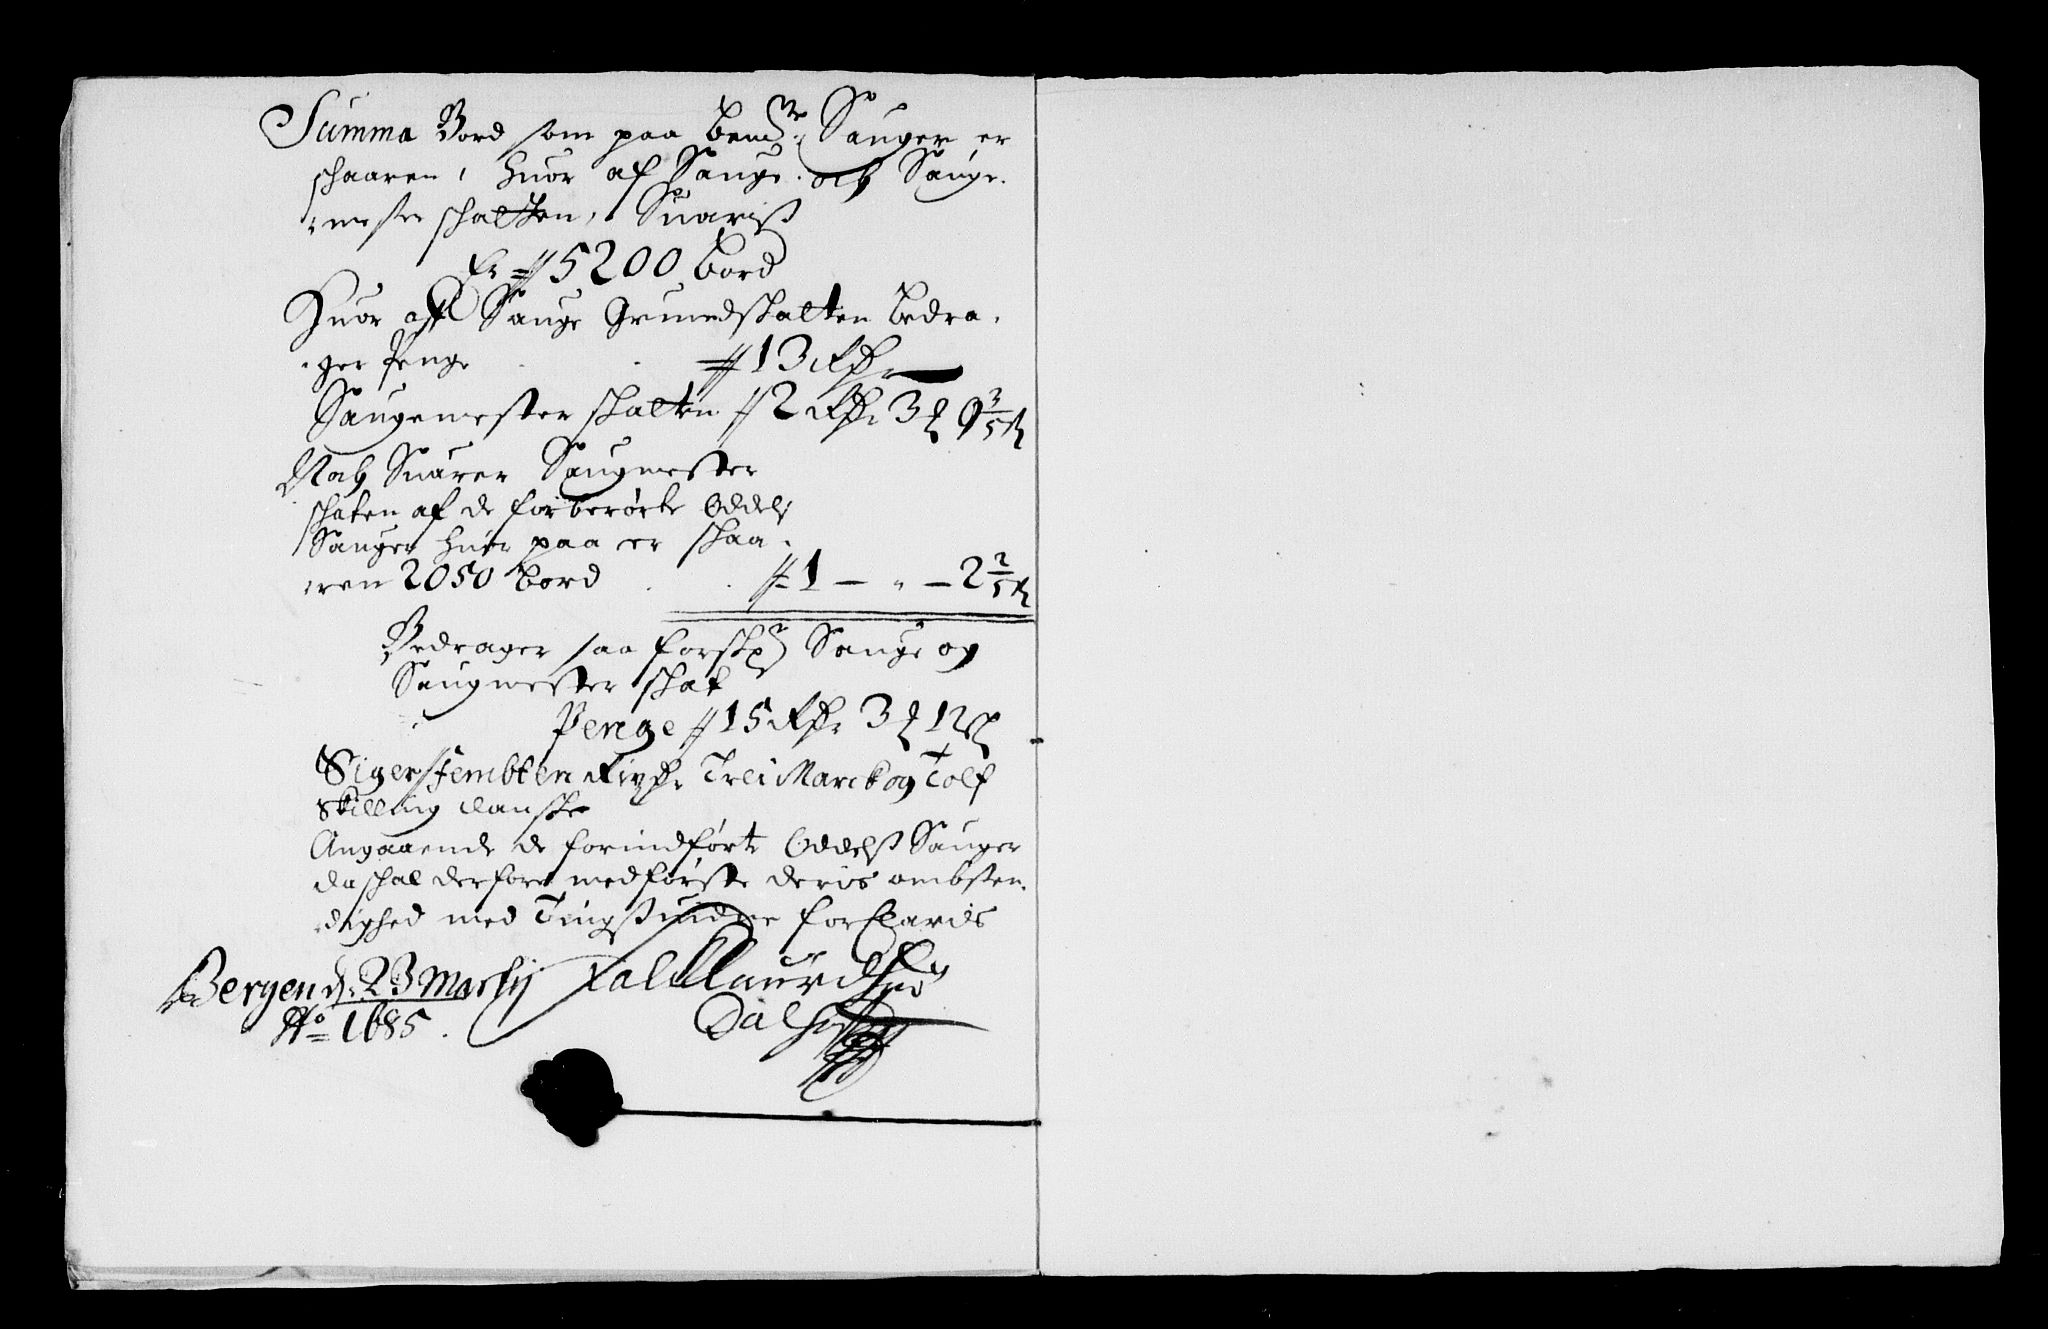 Summa Bord som paa bemte: Sauger er
schaaren, huor af Sauge. och Sauge.
:mester schatten, Suariß
Er # 5200 bord
Huor aff Sauge Grundschatten bedra,
:ger Penge # 13 Rdr
Saugemester schatten # 2 Rdr 3 ƒ 9 3/5 ß
Noch Suarer Saugmester
schaten af de forberørte Oddels
Sauger huor paa er schaa,
:ren 2050 bord # 1 — " — 2 2/5 ß
Bedrager saa Sauge og
Saugmester schat
Penge # 15 Rdr 3 ƒ 12 ß
Siger fembten Rixdr Trei Marck og Tolf
Skilling danske
Angaaende de forindførte Oddelß Sauger
da schal derfore medførste deris ombsten,
:dighed med Tingßuidne forklaris
Bergen d. 23 Martij
Ao 1685.